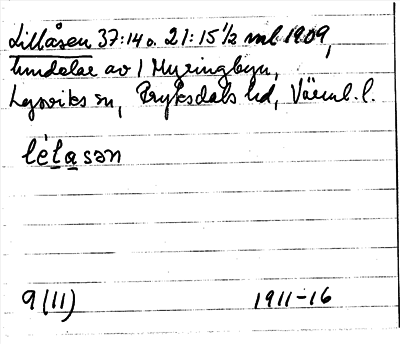 Lillåsen 37:14 o. 21:15 1/2 ml 1909,
lundelar av 1 Myringbyn,
Lysviks sn, Fryksdals hd, Värml. l.
lèlasən
9 (11) 1911-16